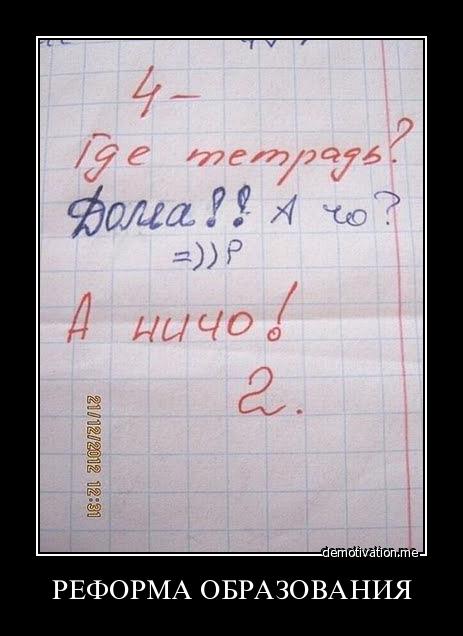 4-
Где тетрадь?
Дома!! А чо?
=))Р
А ничо!
2.
21/12/2012 12:31
demotivation.me
РЕФОРМА ОБРАЗОВАНИЯ